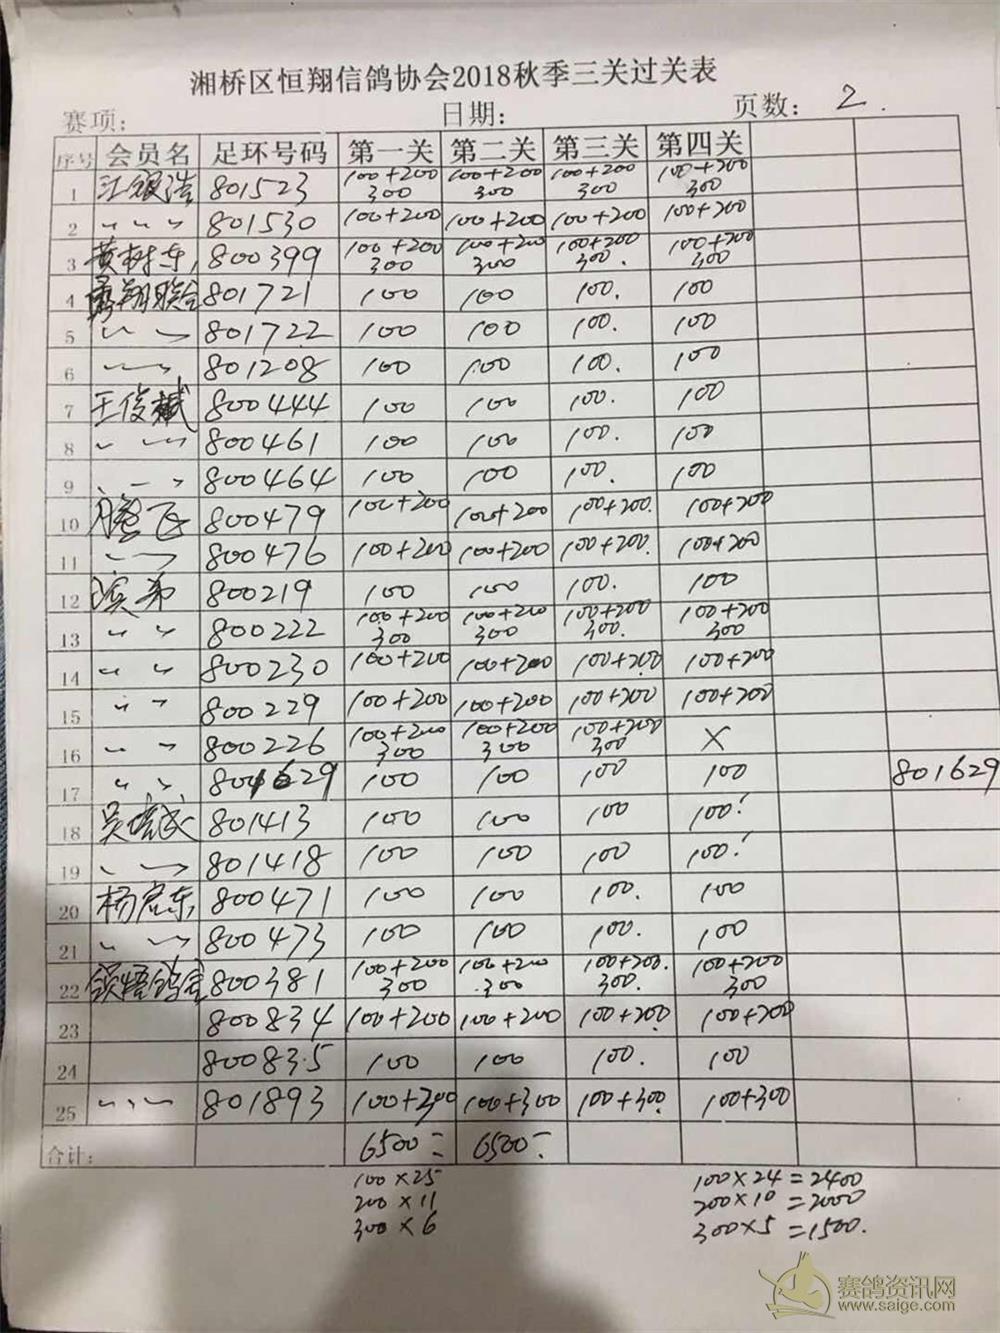 湘桥区恒翔信鸽协会2018秋季三关过关表
赛项: 日期: 页数: 2.
序号 会员名 足环号码 第一关 第二关 第三关 第四关
1 江银浩 801523 100+200 300 100+200 300 100+200 300 100+200 300
2 〃 〃 〃 801530 100+200 100+200 100+200 100+200
3 黄树东, 800399 100+200 300 100+200 300 100+200 300. 100+200 300
4 翔联合 801721 100 100 100. 100
5 〃 〃 801722 100 100 100. 100
6 〃 〃 801208 100 100 100. 100
7 王俊斌 800444 100 100 100. 100
8 〃 〃 800461 100 100 100. 100
9 〃 〃 800464 100 100 100. 100
10 腾飞 800479 100+200 100+200 100+200. 100+200
11 〃 〃 800476 100+200 100+200 100+200. 100+200
12 滨弟 800219 100 100 100. 100
13 〃 〃 800222 100+200 300 100+200 300 100+200 300. 100+200 300
14 〃 〃 800230 100+200 100+200 100+200 100+200
15 〃 〃 800229 100+200 100+200 100+200 100+200
16 〃 〃 800226 100+200 300 100+200 300 100+200 300 ×
17 〃 〃 801629 100 100 100 100 801629
18 吴 801413 100 100 100 100!
19 〃 〃 801418 100 100 100 100!
20 杨东, 800471 100 100 100. 100
21 〃 〃 800473 100 100 100. 100
22 领悟鸽舍 800381 100+200 300 100+200 300 100+200. 300. 100+200 300
23 800834 100+200 100+200 100+200 100+200
24 800835 100 100 100. 100
25 〃 〃 801893 100+300 100+300 100+300 100+300
合计: 6500= 6500=
100×25 100×24=2400
200×11 200×10=2000
300×6 300×5=1500.
赛鸽资讯网
www.saige.com